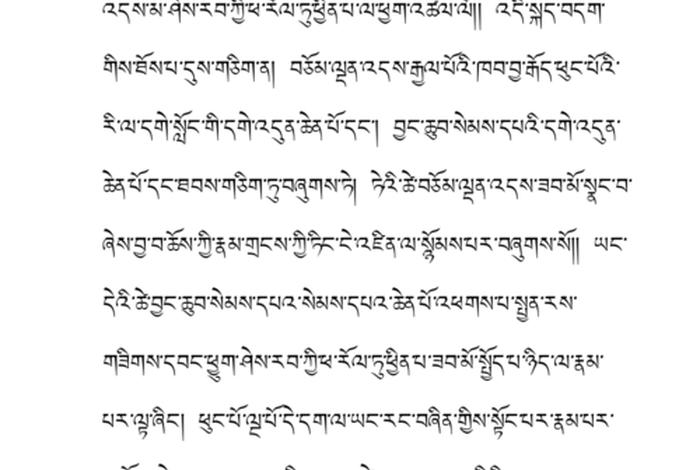 འདས་མ་ཤེས་རབ་ཀྱི་ཕ་རོལ་ཏུ་ཕྱིན་པ་ལ་ཕྱག་འཚལ་ལོ།། འདི་སྐད་བདག་
གིས་ཐོས་པ་དུས་གཅིག་ན། བཅོམ་ལྡན་འདས་རྒྱལ་པོའི་ཁབ་བྱ་རྒོད་ཕུང་པོའི་
རི་ལ་དགེ་སློང་གི་དགེ་འདུན་ཆེན་པོ་དང་། བྱང་ཆུབ་སེམས་དཔའི་དགེ་འདུན་
ཆེན་པོ་དང་ཐབས་གཅིག་ཏུ་བཞུགས་ཏེ། ཏེའི་ཚེ་བཅོམ་ལྡན་འདས་ཟབ་མོ་སྣང་བ་
ཞེས་བྱ་བ་ཆོས་ཀྱི་རྣམ་གྲངས་ཀྱི་ཏིང་ངེ་འཛིན་ལ་སྙོམས་པར་བཞུགས་སོ།། ཡང་
དེའི་ཚེ་བྱང་ཆུབ་སེམས་དཔའ་སེམས་དཔའ་ཆེན་པོ་འཕགས་པ་སྤྱན་རས་
གཟིགས་དབང་ཕྱུག་ཤེས་རབ་ཀྱི་ཕ་རོལ་ཏུ་ཕྱིན་པ་ཟབ་མོ་སྤྱོད་པ་ཉིད་ལ་རྣམ་
པར་ལྟ་ཞིང་། ཕུང་པོ་ལྔ་པོ་དེ་དག་ལ་ཡང་རང་བཞིན་གྱིས་སྟོང་པར་རྣམ་པར་